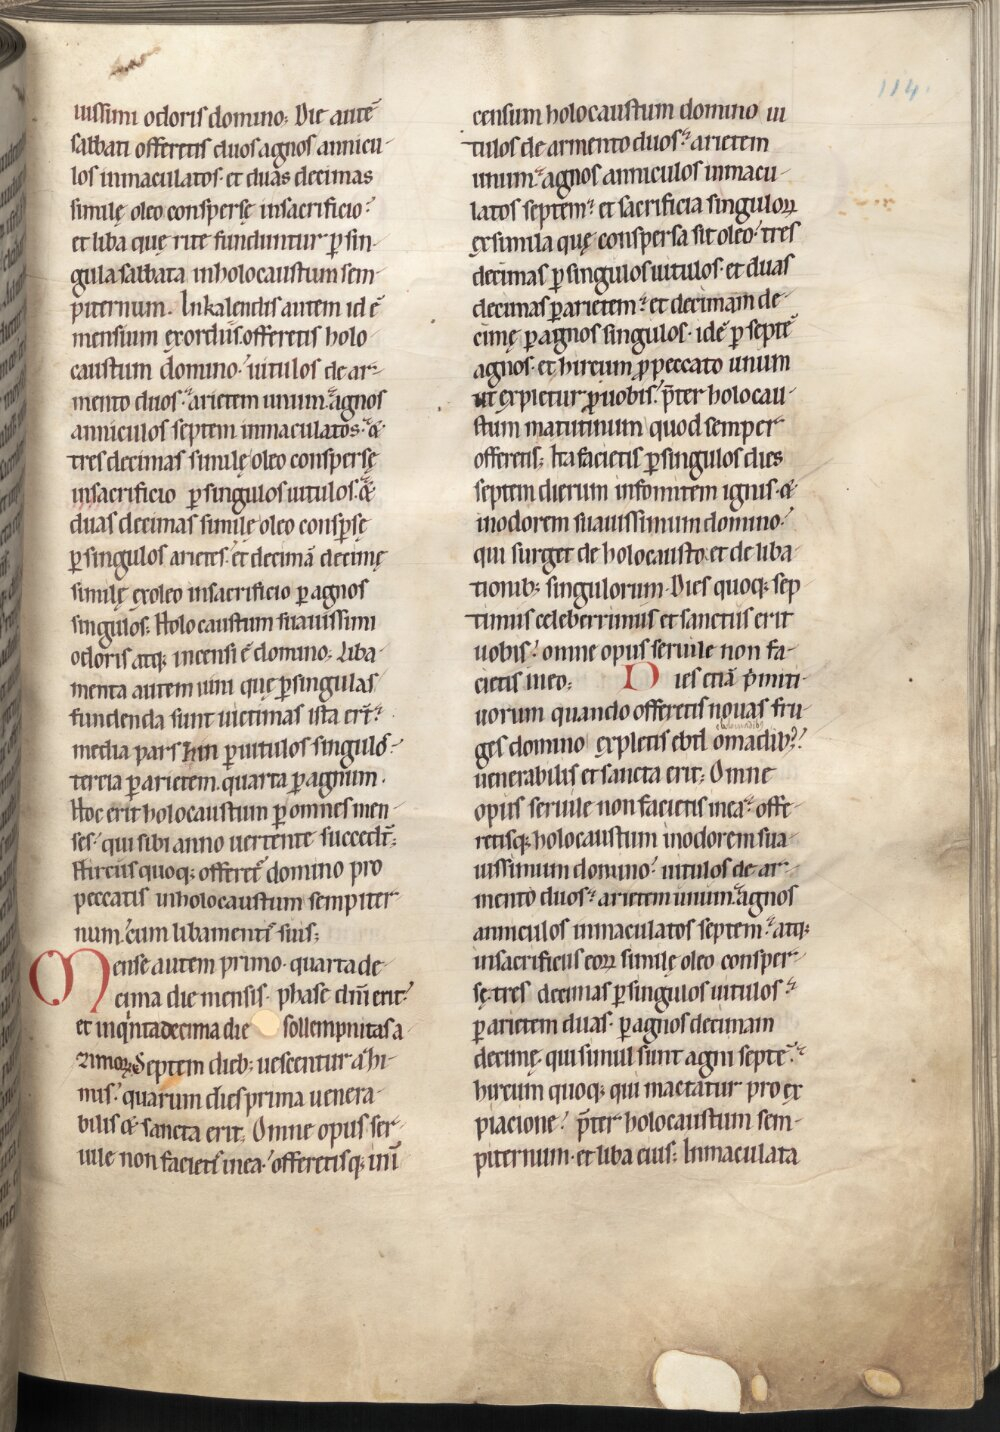 114.
uissimi odoris domino; Die autē
sabbati offeretis duos agnos annicu-
los inmaculatos· et duas decimas
similę oleo conspersę insacrificio?
et liba quę rite funduntur ꝑ sin-
gula sabbata inholocaustum sem-
piternum. Inkalendis autem id ē
mensium exordiis· offeretis holo
caustum domino· uitulos de ar-
mento duos· arietem unum· agnos
anniculos septem inmaculatos· &
tres decimas similę oleo conspersę
insacrificio ꝑ singulos uitulos· &
duas decimas similę oleo consꝑsę
ꝑ singulos arietes· et decimā decimę
similę exoleo insacrificio ꝑ agnos
singulos; Holocaustum suauissimi
odoris atq; incensi ē domino; Liba-
menta autem uini quę ꝑ singulas
fundenda sunt uictimas ista erī·
media pars hin ꝑ uitulos singulo͛-
tercia ꝑ arietem· quarta ꝑ agnum·
Hoc erit holocaustum ꝑ omnes men-
ses· qui sibi anno uertente succedt̄;
Hircus quoq; offeret᷑ domino pro
peccatis inholocaustum sempiter
num· cum libamentis suis;
Mense autem primo· quarta de-
cima die mensis· phase dn̄i erit·
et inqͥnta decima die sollempnitas a
zimoꝝ; Septem dieb; uescentur azi-
mis· quarum dies prima uenera-
bilis & sancta erit; Omne opus ser-
uile non facietis inea· offeretisq; in
censum holocaustum domino ui
tulos de armento duos· arietem
unum· agnos anniculos inmacu-
latos septem· et sacrificia singuloꝝ
exsimila quę conspersa sit oleo· tres
decimas ꝑ singulos uitulos· et duas
decimas ꝑ arietem· et decimam de-
cimę ꝑ agnos singulos· idē ꝑ septē
agnos· et hircum ꝓ peccato unum
ut expietur ꝓ uobis· p̄ter holocau-
stum matutinum quod semper
offeretis; Ita facietis ꝑ singulos dies
septem dierum infomitem ignis· &
inodorem suauissimum domino·
qui surget de holocausto· et de liba-
tionib; singulorum· Dies quoq; sep
timus celeberrimus et sanctus erit
uobis· omne opus seruile non fa-
cietis ineo; Dies etiā pͥmiti-
uorum quando offeretis nouas fru-
ges domino expletis ebdomadib;·
uenerabilis et sancta erit; Omne
opus seruile non facietis inea· offe-
retisq; holocaustum inodorem sua-
uissimum domino· uitulos de ar-
mento duos· arietem unum· agnos
anniculos inmaculatos septem· atq;
insacrificiis eoꝝ similę oleo consper-
sę tres decimas ꝑ singulos uitulos·
ꝑ arietem duas· ꝑ agnos decimam
decimę· qui simul sunt agni septē·
hircum quoq; qui mactatur pro ex
piacione· p̄ter holocaustum sem-
piternum· et liba eius; Inmaculata